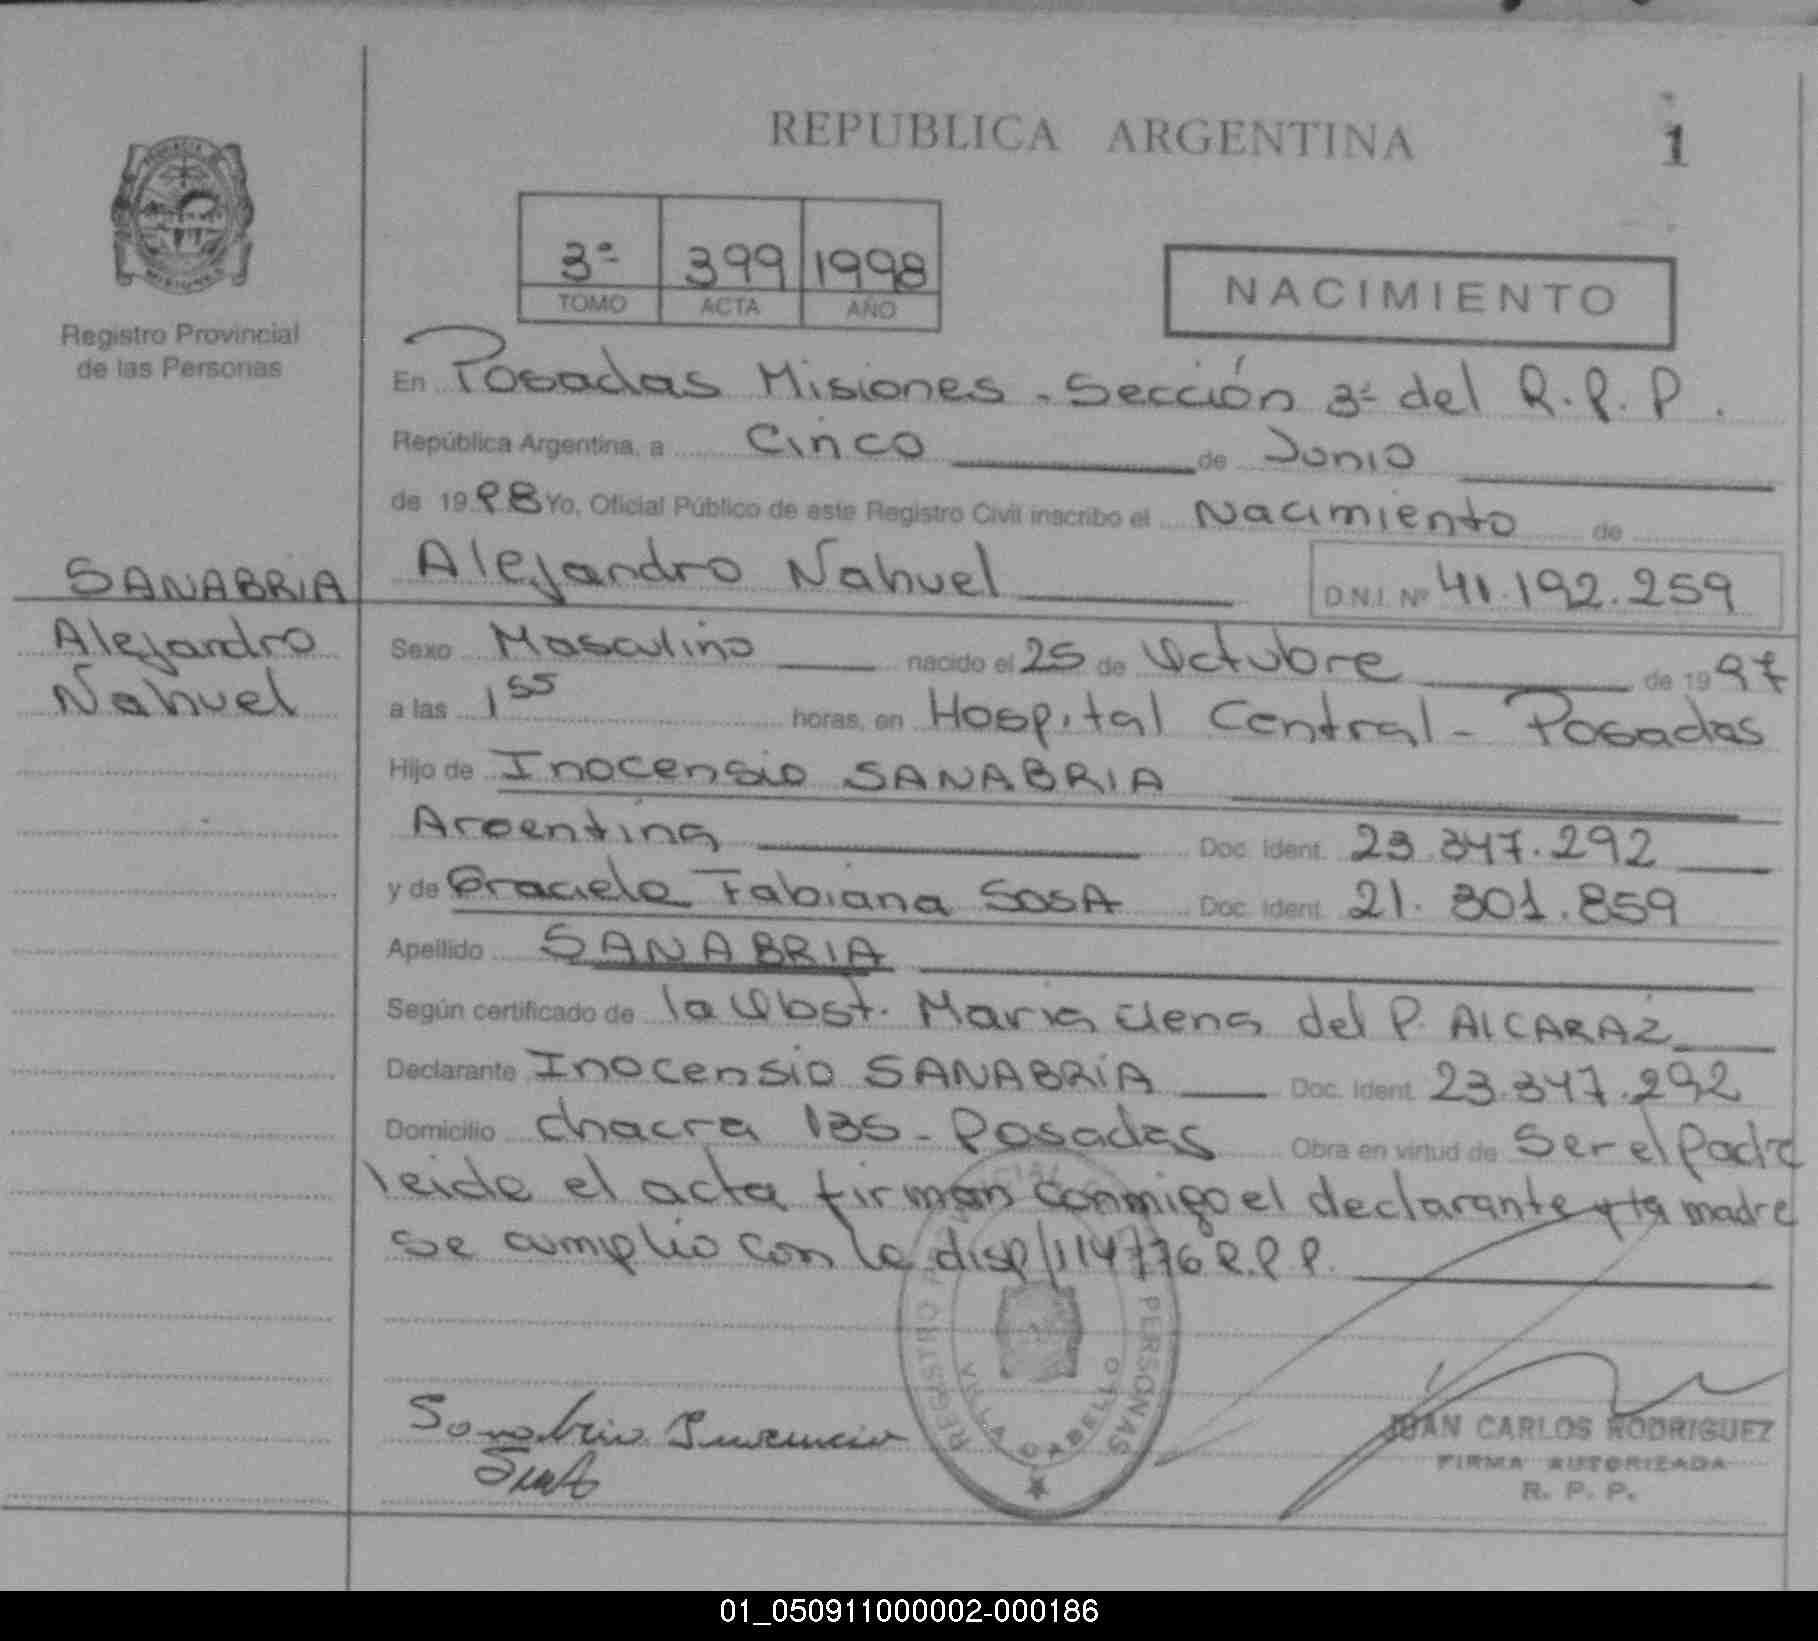 REPUBLICA ARGENTINA
1
3ª 399 1998
TOMO ACTA AÑO
NACIMIENTO
Registro Provincial
de las Personas
En Posadas Misiones - Sección 3ª del R.P.P.
República Argentina, a Cinco de Junio
de 1998 Yo, Oficial Público de este Registro Civil inscribo el Nacimiento de
SANABRIA
Alejandro
Nahuel
Alejandro Nahuel D.N.I. Nº 41.192.259
Sexo Masculino nacido el 25 de Octubre de 1997
a las 1 55 horas, en Hospital Central - Posadas
Hijo de Inocensio SANABRIA
Argentina Doc. Ident. 23.347.292
y de Graciela Fabiana SOSA Doc. Ident. 21.301.859
Apellido SANABRIA
Según certificado de la Obst. Maria Elena del P. ALCARAZ
Declarante Inocensio SANABRIA Doc. Ident. 23.347.292
Domicilio chacra 135 - Posadas Obra en virtud de Ser el Padre
leida el acta firman conmigo el declarante y la madre
se cumplio con la disp/114/76 R.P.P.
REGISTRO PROVINCIAL PERSONAS
VILLA CABELLO
Sanabria
JUAN CARLOS RODRIGUEZ
FIRMA AUTORIZADA
R. P. P.
01_050911000002-000186